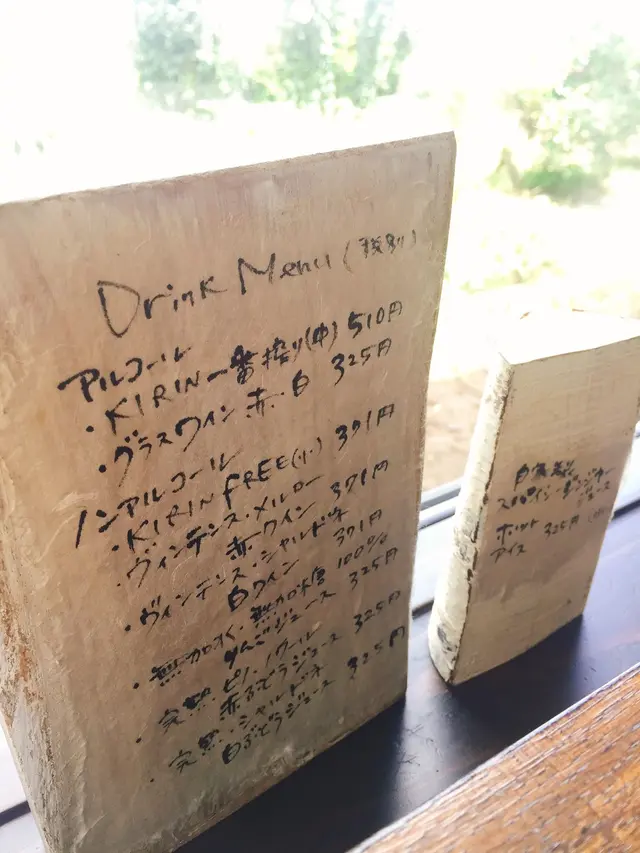 Drink Menu (税別)
アルコール
・KIRIN一番搾り(中) 510円
・グラスワイン 赤・白 325円
ノンアルコール
・KIRIN FREE(小) 391円
・ヴィンテンス・メルロー
赤ワイン 371円
・ヴィンテンス・シャルドネ
白ワイン 371円
・無加水・無加糖 100%
りんごジュース 325円
・完熟ピノ・ノワール
赤ぶどうジュース 325円
・完熟シャルドネ
白ぶどうジュース 325円
自家製
スパイシー・ジンジャー
ジュース
ホット
アイス 325円